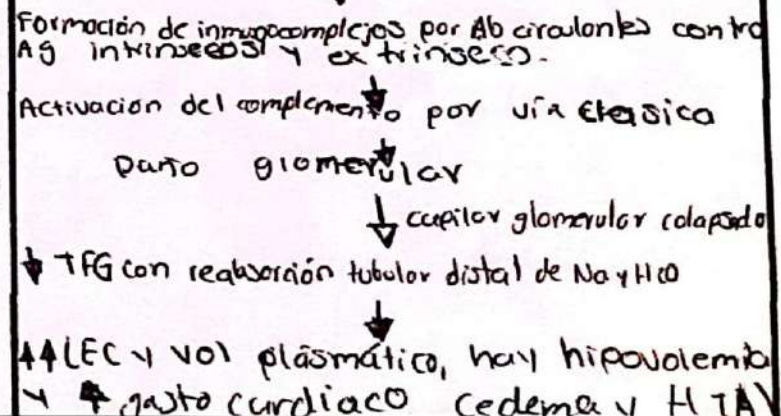 Formación de inmunocomplejos por Ab circulantes contra
Ag intrinsecos y extrinseco.
↓
Activación del complemento por vía clasica
↓
Daño glomerular
↓ capilar glomerular colapsado
↓ TFG con reabsorción tubular distal de Na y H2O
↓
↑↑LEC y vol plásmático, hay hipovolemia
y ↑ gasto cardiaco (edema y HTA)